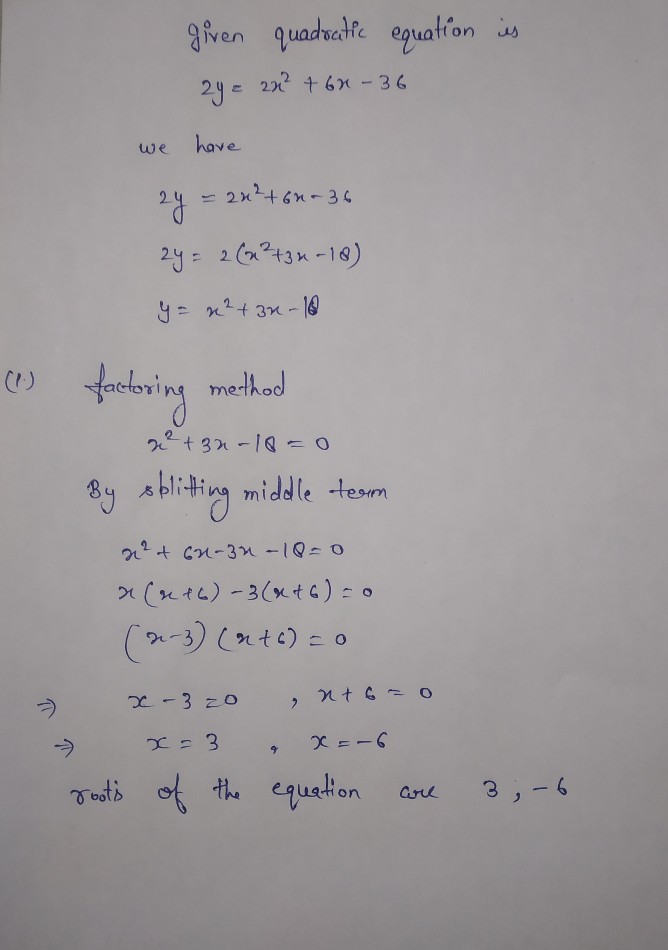 given quadratic equation is
2y = 2x² + 6x - 36
we have
2y = 2x² + 6x - 36
2y = 2(x² + 3x - 18)
y = x² + 3x - 18
(1.) factoring method
x² + 3x - 18 = 0
By splitting middle term
x² + 6x - 3x - 18 = 0
x(x+6) - 3(x+6) = 0
(x-3) (x+6) = 0
⇒ x - 3 = 0 , x + 6 = 0
⇒ x = 3 , x = -6
roots of the equation are 3, -6